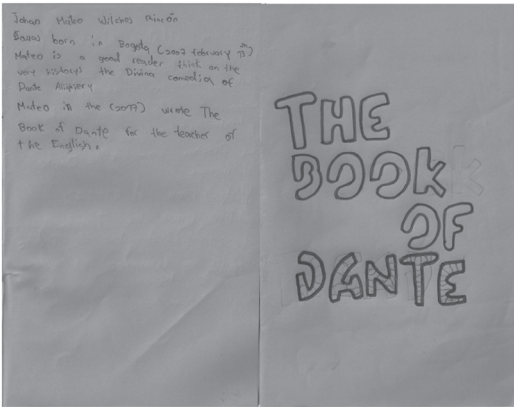 Johan Mateo Wilches Rincón
born in Bogota (2007 february
Mateo is a good reader think on the
very history the Divina comedia of
Dante
Mateo in the wrote The
Book of Dante for the teacher of
the English.
THE
BOOK
OF
DANTE